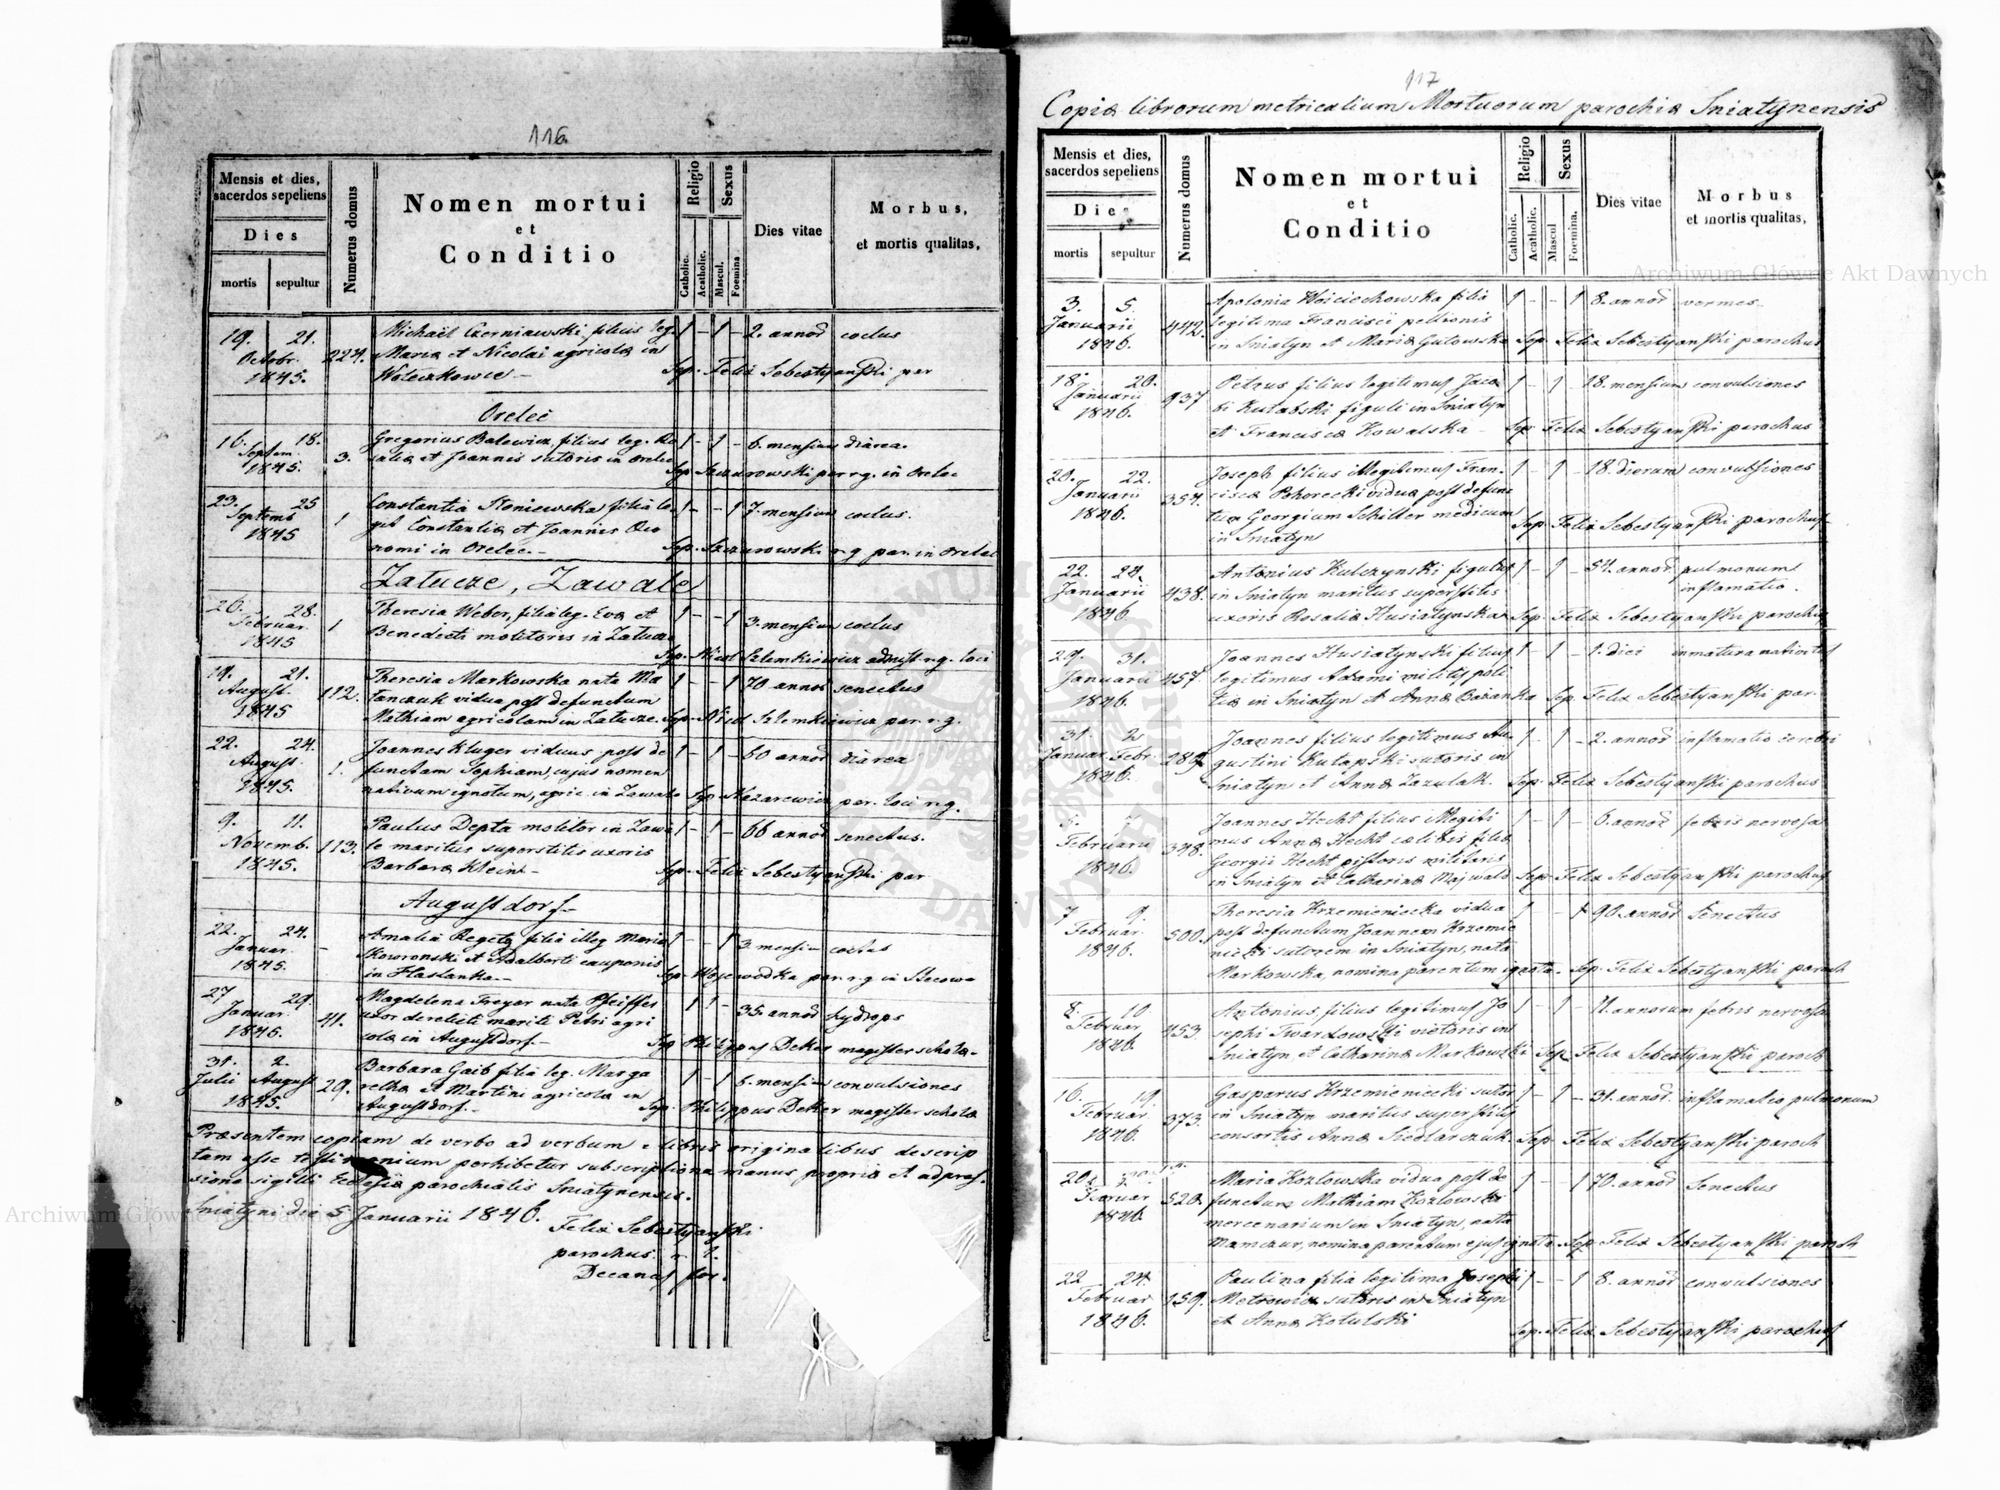 116.
Mensis et dies,
sacerdos sepeliens
Dies
mortis
sepultur
Numerus domus
Nomen mortui
et
Conditio
Religio
Catholic.
Acatholic.
Sexus
Mascul.
Foemina
Dies vitae
Morbus,
et mortis qualitas,
19. 21.
Octobr.
1845.
224.
Michail Czerniawski, filius leg.
Mariæ et Nicolai agricolæ in
1 - 1 - 2. annor coclus
Sep. Felix Sebestyanski par
Orelec
16. 18.
Septem.
1845.
3.
Gregorius Balewicz, filius leg. Ro
saliæ et Joannis sutoris in Orelec
1 - 1 - 6. mensium diarea.
Sep. Szczurowski par r.g. in Orelec
23. 25
Septemb
1845
1
Constantia Stoniewska filia le
git Constantiæ et Joannis Oeo
nomi in Orelec.
1 - - 1 7. mensium coclus.
Sep. Szczurowski r.g. par. in Orelec
Zatucze, Zawale
26. 28.
Februar.
1845
1
Theresia Weber, filia leg. Evæ et
Benedicti molitoris in Zatucze
1 - - 1 3. mensium coclus
19. 21.
August.
1845
112.
Theresia Markowska nata Ma
tanczuk vidua post defunctum
Mathiam agricolam in Zatucze.
1 - - 1 70 annor senectus
22. 24.
August.
1845.
1.
Joannes Kluger viduus post de
functam Sophiam, cujus nomen
nativum ignotum, agric. in Zawale
1 - 1 - 60 annor diarea
Sep. Nazarewicz par. loci r.g.
9. 11.
Novemb.
1845.
113.
Paulus Depta molitor in Zawa
le maritus superstitis uxoris
Barbaræ Klein
1 - 1 - 66 annor senectus.
Sep. Felix Sebestyanski par
Augustdorf
22. 24.
Januar.
1845.
-
Amalia Regetz filia illeg. Mariæ
Skowronski et Adalberti cauponis
in
1 - - 1 3. mensium coclus
27 29.
Januar.
1845.
41.
Magdelena Freyer nata Pfeiffer
uxor derelicti mariti Petri agri
colæ in Augustdorf.
1 1 - 35. annor hydrops
Sep. Philippus Deker magister scholæ.
31. 2.
Julii August
1845.
29.
Barbara Gaib filia leg. Marga
rethæ et Martini agricolæ in
Augustdorf.
1 - 1 6. mensium convulsiones
Sep. Philippus Deker magister scholæ
Præsentem copiam de verbo ad verbum e libris originalibus descrip
tam esse testimonium perhibetur subscriptione manus propriæ et adpres
sione sigilli Ecclesiæ parochialis Sniatynensis.
Sniatyn die 5 Januarii 1846.
Felix Sebestyanski
parochus r. l.
Decanus for.
117
Copia librorum metricalium Mortuorum parochiæ Sniatynensis
Mensis et dies,
sacerdos sepeliens
Dies
mortis
sepultur
Numerus domus
Nomen mortui
et
Conditio
Religio
Catholic.
Acatholic.
Sexus
Mascul
Foemina.
Dies vitae
Morbus
et mortis qualitas,
3. 5.
Januarii
1846.
442.
Apolonia Woiciechowska filia
legitima Francisci pellionis
in Sniatyn et Mariæ Gutowska
1 - - 1 8. annor vermes
Sep. Felix Sebestyanski parochus
18. 20.
Januarii
1846.
937
Petrus filius legitimus Jaco
bi Kutabski figuli in Sniatyn
et Franciscæ Kowalska
1 - 1 - 18. mensium convulsiones
Sep. Felix Sebestyanski parochus
20. 22.
Januarii
1846.
354.
Joseph filius illegitimus Fran
ciscæ Pohorecki viduæ post defunc
tum Georgium Schiller medicum
in Sniatyn
1 - 1 - 18. dierum convulsiones
Sep. Felix Sebestyanski parochus
22. 24.
Januarii
1846.
438.
Antonius Kulczynski figulus
in Sniatyn maritus superstitis
uxoris Rosaliæ Husiatynska
1 - 1 - 54. annor pulmonum
inflamatio.
Sep. Felix Sebestyanski parochus
29. 31.
Januarii
1846.
457.
Joannes Husiatynski filius
legitimus Adami militis poli
tiæ in Sniatyn et Annæ Bażanska
1 - 1 - 1. diei inmatura nativitas
Sep. Felix Sebestyanski par.
31. 2
Januar. Febr.
1846.
289.
Joannes filius legitimus Au
gustini Kutapski sutoris in
Sniatyn et Annæ Zazulak.
1 - 1 - 2. annor inflamatio cerebri
Sep. Felix Sebestyanski parochus
Februarii
1846.
348.
Joannes Hecht filius illegiti
mus Annæ Hecht cælibis filiæ
Georgii Hecht pistoris militaris
in Sniatyn et Catharinæ Majwald
1 - 1 - 6. annor febris nervosa
Sep. Felix Sebestyanski parochus
7 9.
Februar.
1846.
500.
Theresia Krzemieniecka vidua
post defunctum Joannem Krzemie
niecki sutorem in Sniatyn, nata
Markowska, nomina parentum ignota.
1 - - 1 90. annor Senectus
Sep. Felix Sebestyanski paroch
8. 10.
Februar
1846.
453.
Antonius, filius legitimus Jo
sephi Twardowski vietoris in
Sniatyn et Catharinæ Markowski
1 - 1 - 11. annorum febris nervosa
Sep. Felix Sebestyanski paroch
16. 19
Februar.
1846.
373.
Gasparus Krzemieniecki sutor
in Sniatyn maritus superstitis
consortis Annæ Siedlarczuk.
1 - 1 - 31. annor. inflamatio pulmonum
Sep. Felix Sebestyanski paroch
20.
Februar
1846.
520.
Maria Kozlowska vidua post de
functum Mathiam Kozlowski
mercenarium in Sniatyn, nata
Mamczur, nomina parentum ejus ignota.
1 - - 1 70. annor Senectus
Sep. Felix Sebestyanski paroch
22 24.
Februar
1846.
159.
Paulina filia legitima Josephi
Metrowicz sutoris in Sniatyn
et Annæ Kotulski
1 - - 1 8. annor convulsiones
Sep. Felix Sebestyanski parochus
Archiwum Główne Akt Dawnych
Archiwum Główne Akt Dawnych